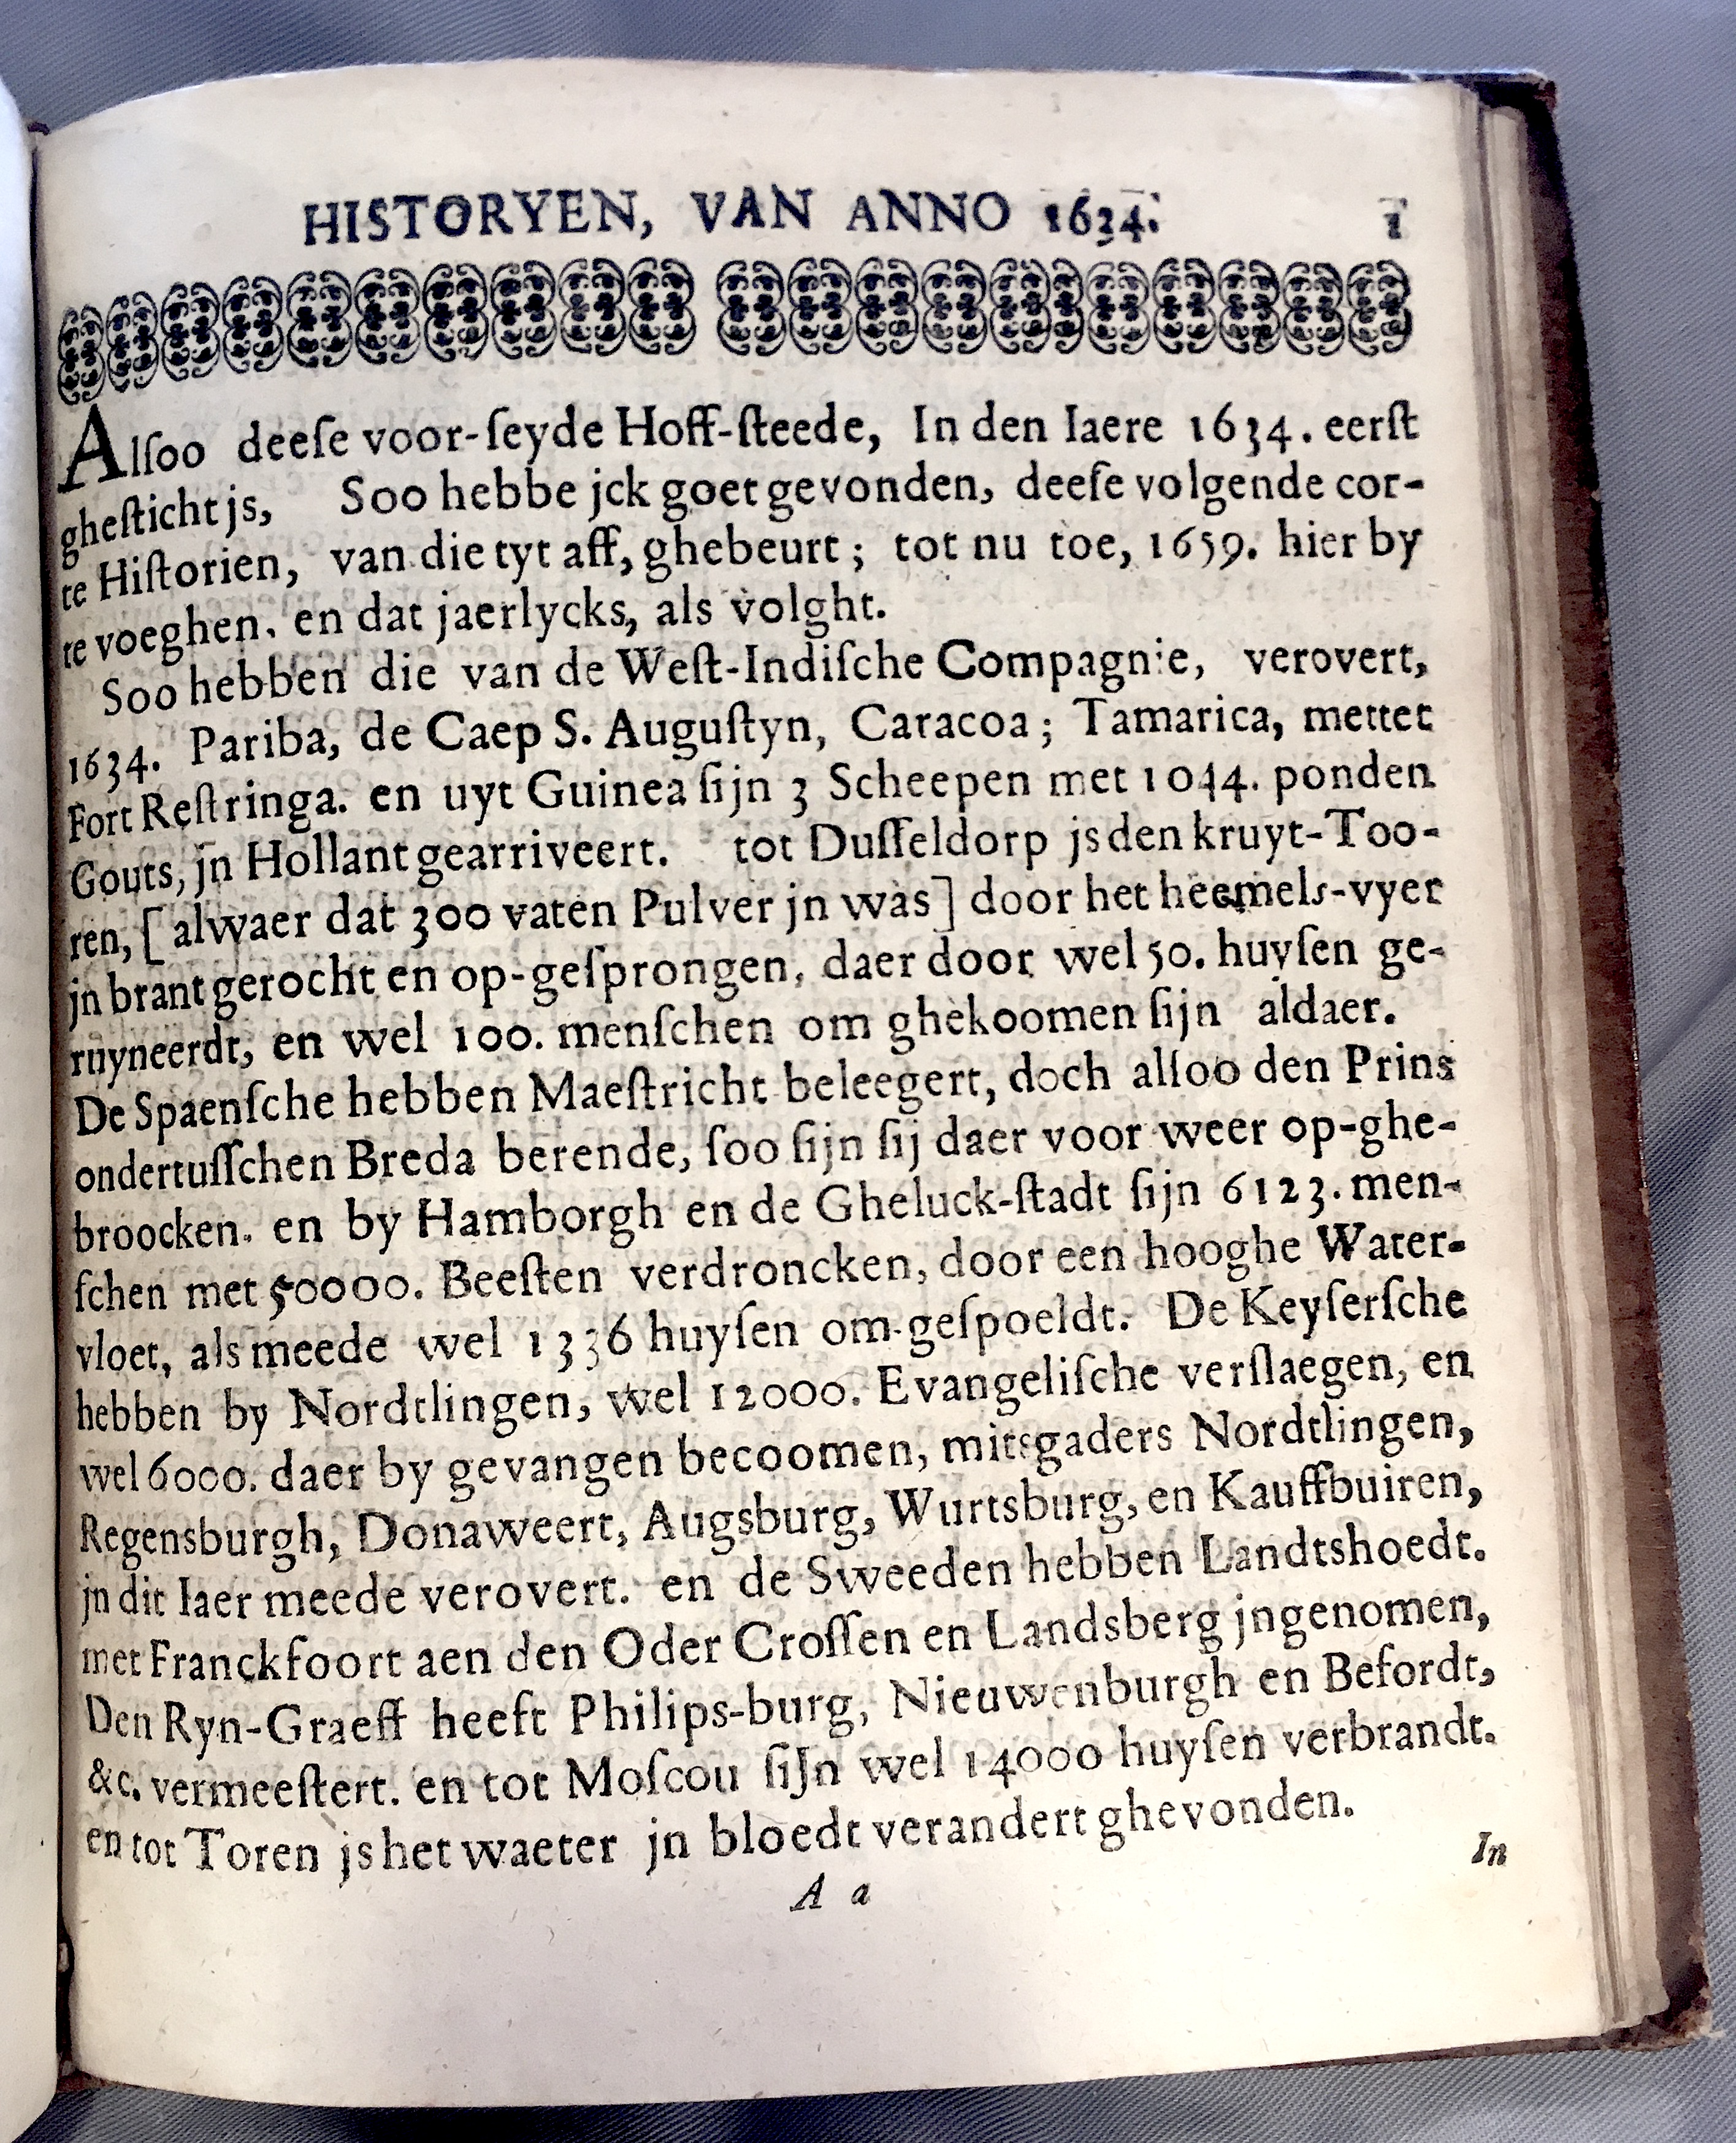 HISTORYEN, VAN ANNO 1634. 1
Alſoo deeſe voor-ſeyde Hoff-ſteede, In den Iaere 1634. eerſt
gheſticht js, Soo hebbe jck goet gevonden, deeſe volgende cor-
te Hiſtorien, van die tyt aff, ghebeurt; tot nu toe, 1659. hier by
te voeghen. en dat jaerlycks, als volght.
Soo hebben die van de Weſt-Indiſche Compagnie, verovert,
1634. Pariba, de Caep S. Auguſtyn, Caracoa; Tamarica, mettet
Fort Reſtringa. en uyt Guinea ſijn 3 Scheepen met 1044. ponden
Gouts, jn Hollant gearriveert. tot Duſſeldorp js den kruyt-Too-
ren, [alwaer dat 300 vaten Pulver jn was] door het heemels-vyer
jn brant gerocht en op-geſprongen, daer door wel 50. huyſen ge-
ruyneerdt, en wel 100. menſchen om ghekoomen ſijn aldaer.
De Spaenſche hebben Maeſtricht beleegert, doch alſoo den Prins
ondertuſſchen Breda berende, ſoo ſijn ſij daer voor weer op-ghe-
broocken. en by Hamborgh en de Gheluck-ſtadt ſijn 6123. men-
ſchen met 50000. Beeſten verdroncken, door een hooghe Water-
vloet, als meede wel 1336 huyſen om-geſpoeldt. De Keyſerſche
hebben by Nordtlingen, wel 12000. Evangeliſche verſlaegen, en
wel 6000. daer by gevangen becoomen, mitsgaders Nordtlingen,
Regensburgh, Donaweert, Augsburg, Wurtsburg, en Kauffbuiren,
jn dit Iaer meede verovert. en de Sweeden hebben Landtshoedt.
met Franckfoort aen den Oder Croſſen en Landsberg jngenomen,
Den Ryn-Graeff heeft Philips-burg, Nieuwenburgh en Befordt,
&c. vermeeſtert. en tot Moſcou ſiJn wel 14000 huyſen verbrandt.
en tot Toren js het waeter jn bloedt verandert ghevonden.
In
A a